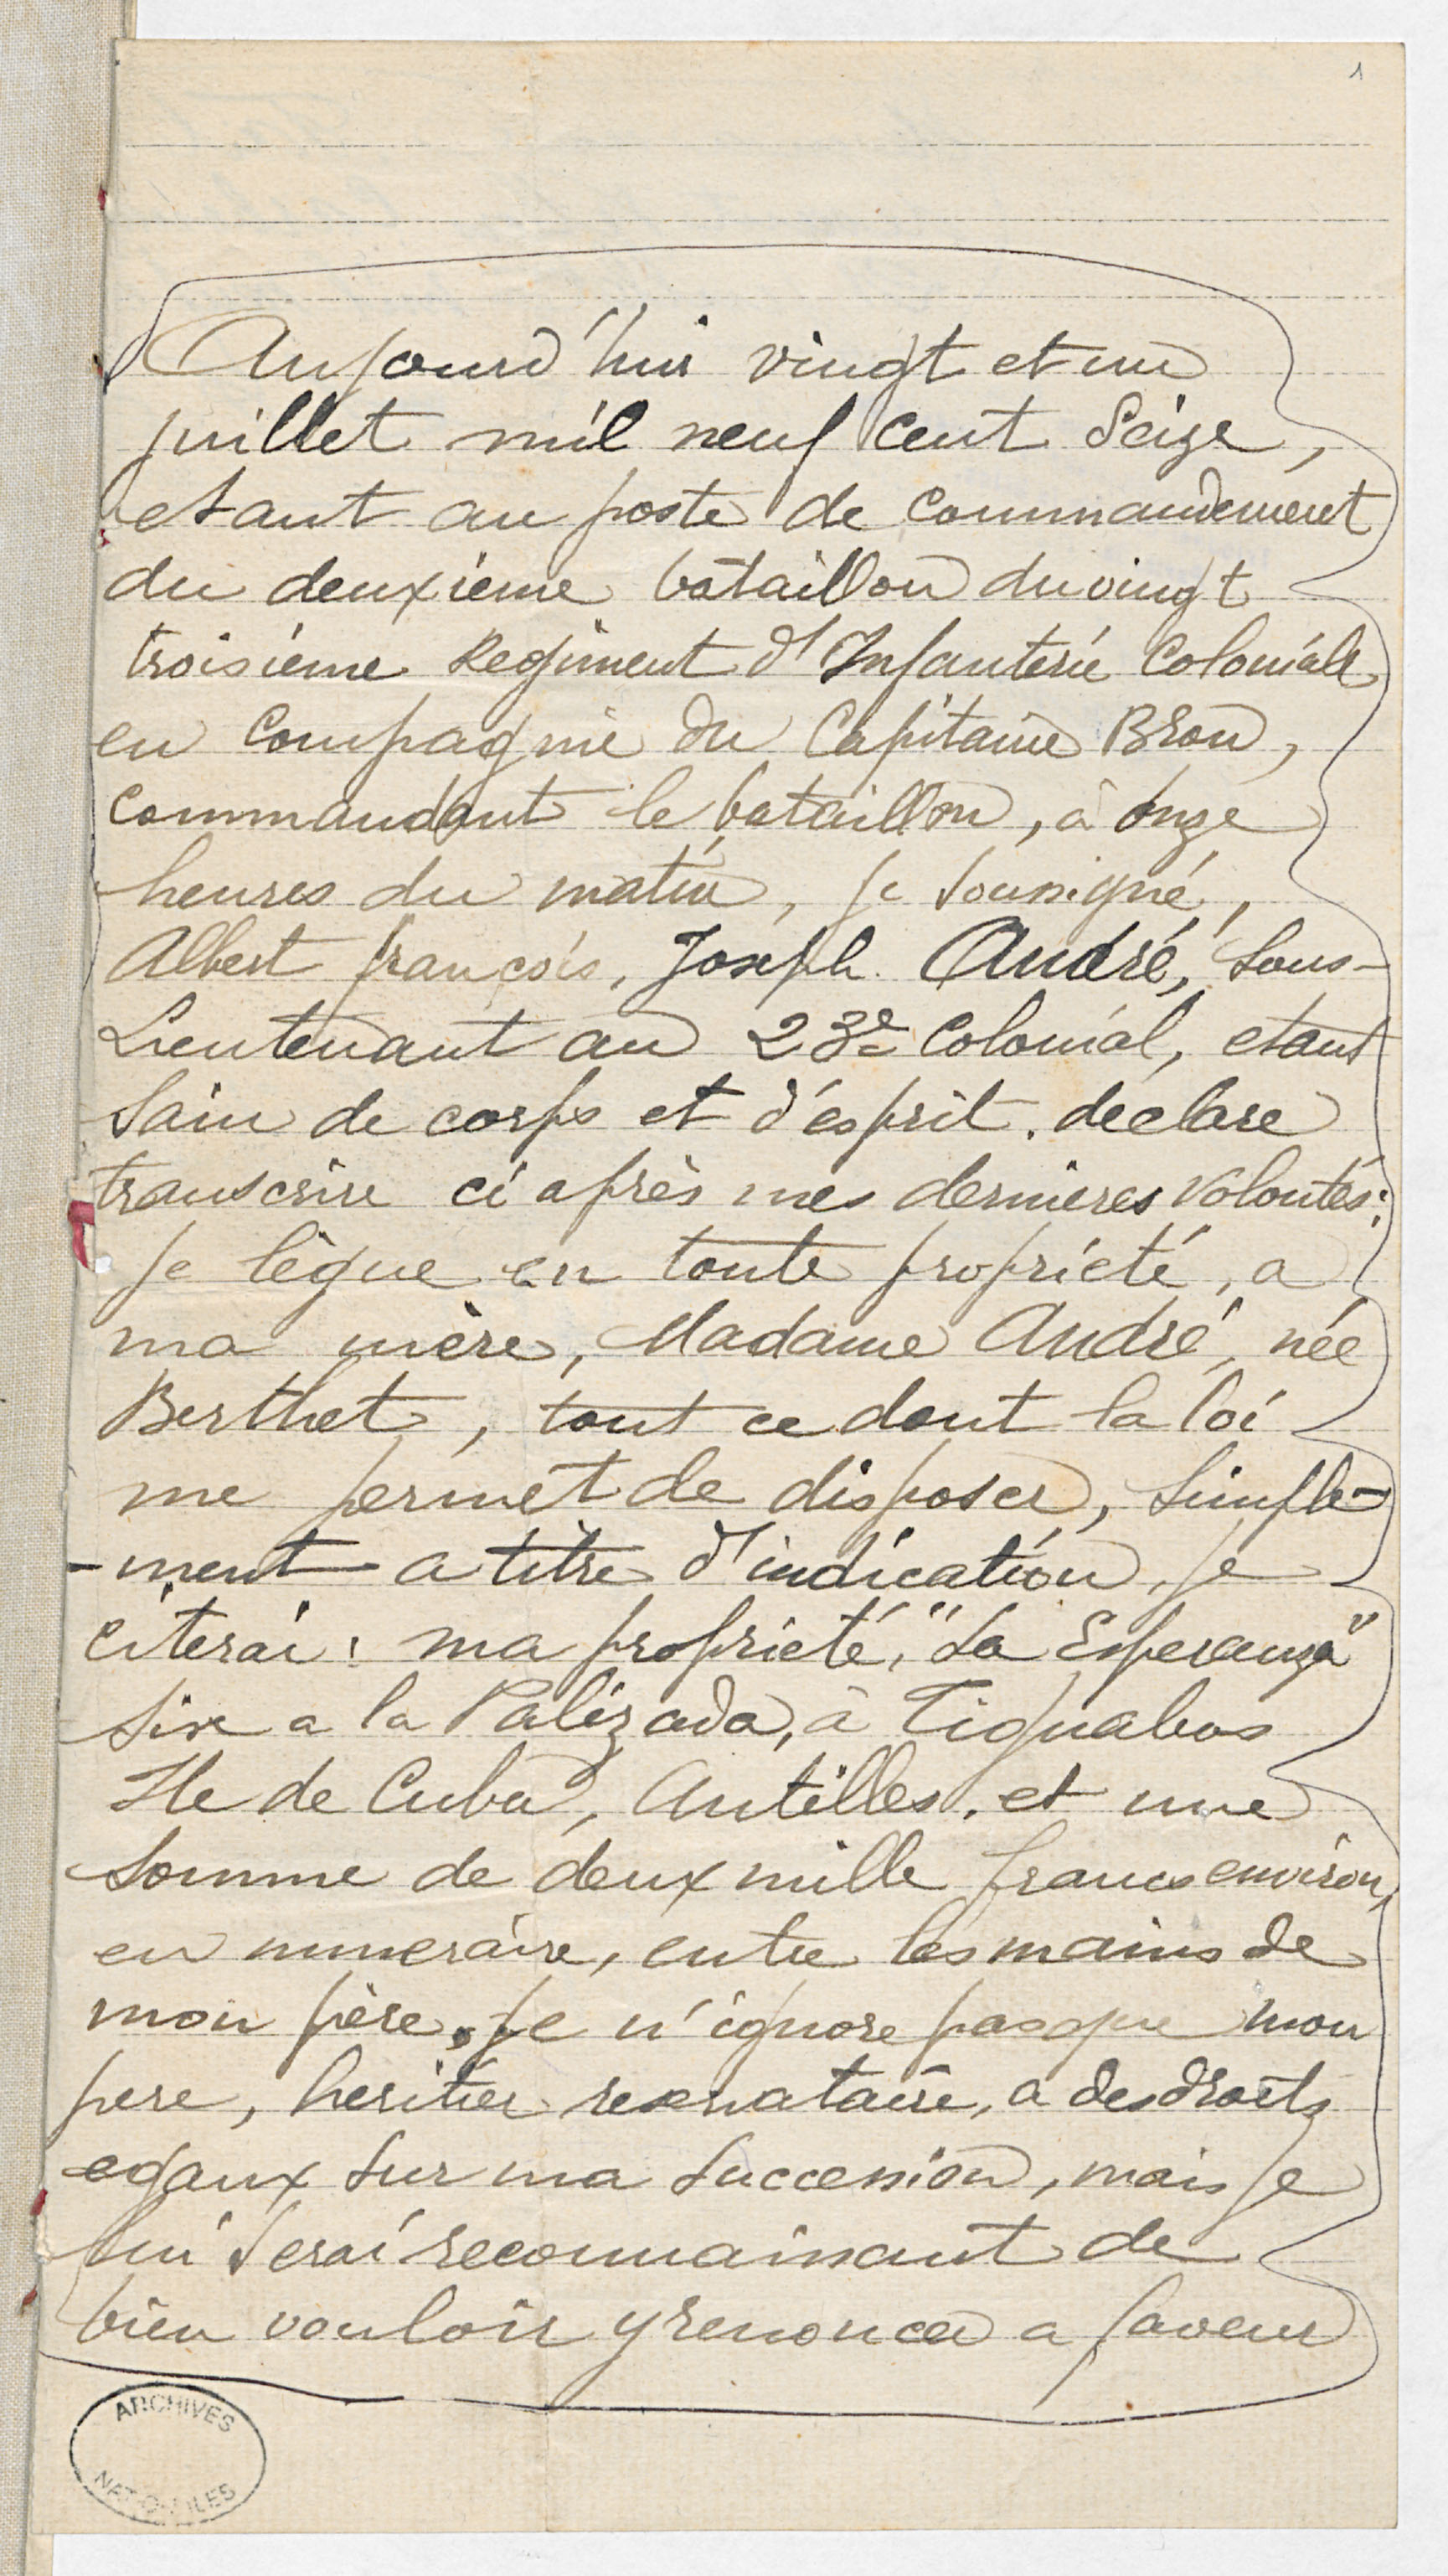 1
Aujourd'hui vingt et un
juillet mil neuf cent seize,
etant au poste de commandement
du deuxième bataillon du vingt
troisième Regiment d'Infanterie Coloniale
en Compagnie du Capitaine Bron,
commandant le bataillon, à onze
heures du matin, je soussigné,
Albert françois, Joseph André, Sous-
Lieutenant au 23e Colonial, etant
Sain de corps et d'esprit. declare
transcrire ci après mes dernieres volontés:
je lègue en toute propriété, a
ma mère, Madame André, née
Berthet, tout ce dont la loi
me permet de disposer, Simple-
-ment a titre d'indication, je
citerai: ma proprieté, "La Esperanza"
sise a la Palizada, à Tiguabos
Ile de Cuba, Antilles, et une
Somme de deux mille francs environ,
en numeraire, entre les mains de
mon père. Je n'ignore pas que mon
pere, heritier reservataire, a des droits
egaux sur ma succession, mais je
lui serai reconnaissant de
bien vouloir y renoncer a faveur
ARCHIVES
NATIONALES